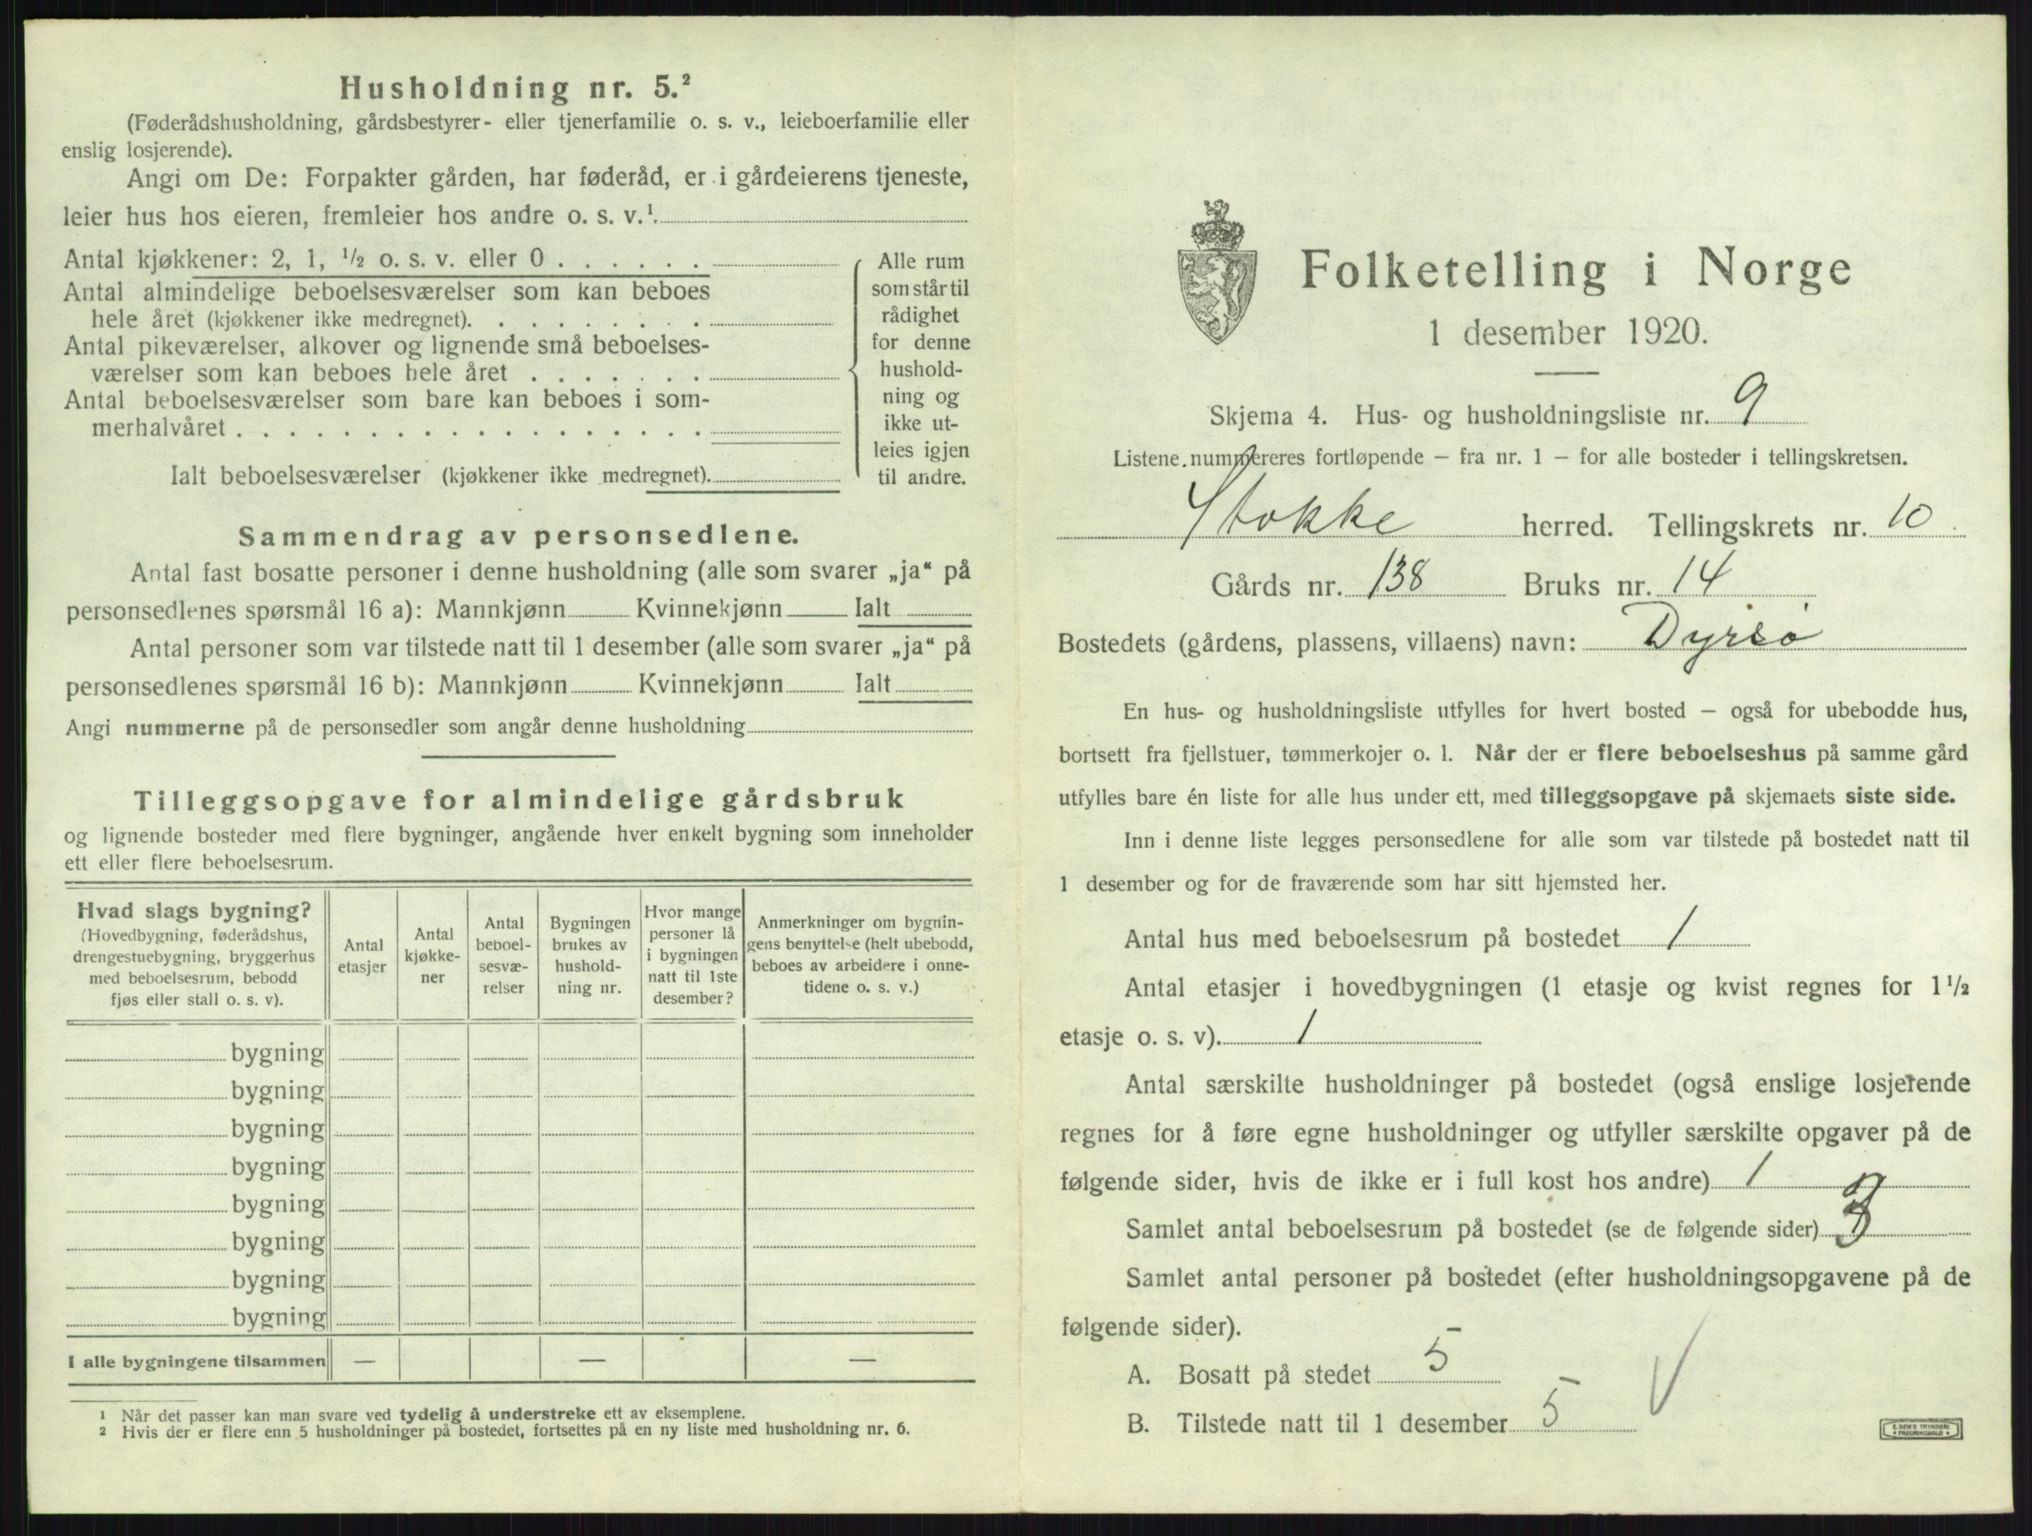 Husholdning nr. 5.²
(Føderådshusholdning, gårdsbestyrer- eller tjenerfamilie o. s. v., leieboerfamilie eller
enslig losjerende).
Angi om De: Forpakter gården, har føderåd, er i gårdeierens tjeneste,
leier hus hos eieren, fremleier hos andre o. s. v.¹
Antal kjøkkener: 2, 1, ½ o. s. v. eller 0 . . . . . .
Antal almindelige beboelsesværelser som kan beboes
hele året (kjøkkener ikke medregnet). . . . . . . . .
Antal pikeværelser, alkover og lignende små beboelses-
værelser som kan beboes hele året . . . . . . .
Antal beboelsesværelser som bare kan beboes i som-
merhalvåret . . . . . . . . . . . . . . . . . .
Ialt beboelsesværelser (kjøkkener ikke medregnet).
Alle rum
som står til
rådighet
for denne
hushold-
ning og
ikke ut-
leies igjen
til andre.
Sammendrag av personsedlene.
Antal fast bosatte personer i denne husholdning (alle som svarer „ja“ på
personsedlenes spørsmål 16 a): Mannkjønn Kvinnekjønn Ialt
Antal personer som var tilstede natt til 1 desember (alle som svarer „ja“ på
personsedlenes spørsmål 16 b): Mannkjønn Kvinnekjønn Ialt
Angi nummerne på de personsedler som angår denne husholdning
Tilleggsopgave for almindelige gårdsbruk
og lignende bosteder med flere bygninger, angående hver enkelt bygning som inneholder
ett eller flere beboelsesrum.
Hvad slags bygning?
(Hovedbygning, føderådshus,
drengestuebygning, bryggerhus
med beboelsesrum, bebodd
fjøs eller stall o. s. v).
Antal
etasjer
Antal
kjøkke-
ner
Antal
beboel-
sesvæ-
relser
Bygningen
brukes av
hushold-
ning nr.
Hvor mange
personer lå
i bygningen
natt til 1ste
desember?
Anmerkninger om bygnin-
gens benyttelse (helt ubebodd,
beboes av arbeidere i onne-
tidene o. s. v.)
bygning
bygning
bygning
bygning
bygning
bygning
bygning
bygning
I alle bygningene tilsammen — — —
¹ Når det passer kan man svare ved tydelig å understreke ett av eksemplene.
² Hvis der er flere enn 5 husholdninger på bostedet, fortsettes på en ny liste med husholdning nr. 6.
Folketelling i Norge
1 desember 1920.
Skjema 4. Hus- og husholdningsliste nr. 9
Listene nummereres fortløpende – fra nr. 1 – for alle bosteder i tellingskretsen.
Stokke herred. Tellingskrets nr. 10
Gårds nr. 138 Bruks nr. 14
Bostedets (gårdens, plassens, villaens) navn: Dyrsø
En hus- og husholdningsliste utfylles for hvert bosted – også for ubebodde hus,
bortsett fra fjellstuer, tømmerkojer o. l. Når der er flere beboelseshus på samme gård
utfylles bare én liste for alle hus under ett, med tilleggsopgave på skjemaets siste side.
Inn i denne liste legges personsedlene for alle som var tilstede på bostedet natt til
1 desember og for de fraværende som har sitt hjemsted her.
Antal hus med beboelsesrum på bostedet 1
Antal etasjer i hovedbygningen (1 etasje og kvist regnes for 1½
etasje o. s. v). 1
Antal særskilte husholdninger på bostedet (også enslige losjerende
regnes for å føre egne husholdninger og utfyller særskilte opgaver på de
følgende sider, hvis de ikke er i full kost hos andre) 1
Samlet antal beboelsesrum på bostedet (se de følgende sider)
Samlet antal personer på bostedet (efter husholdningsopgavene på de
følgende sider).
A. Bosatt på stedet 5
B. Tilstede natt til 1 desember 5